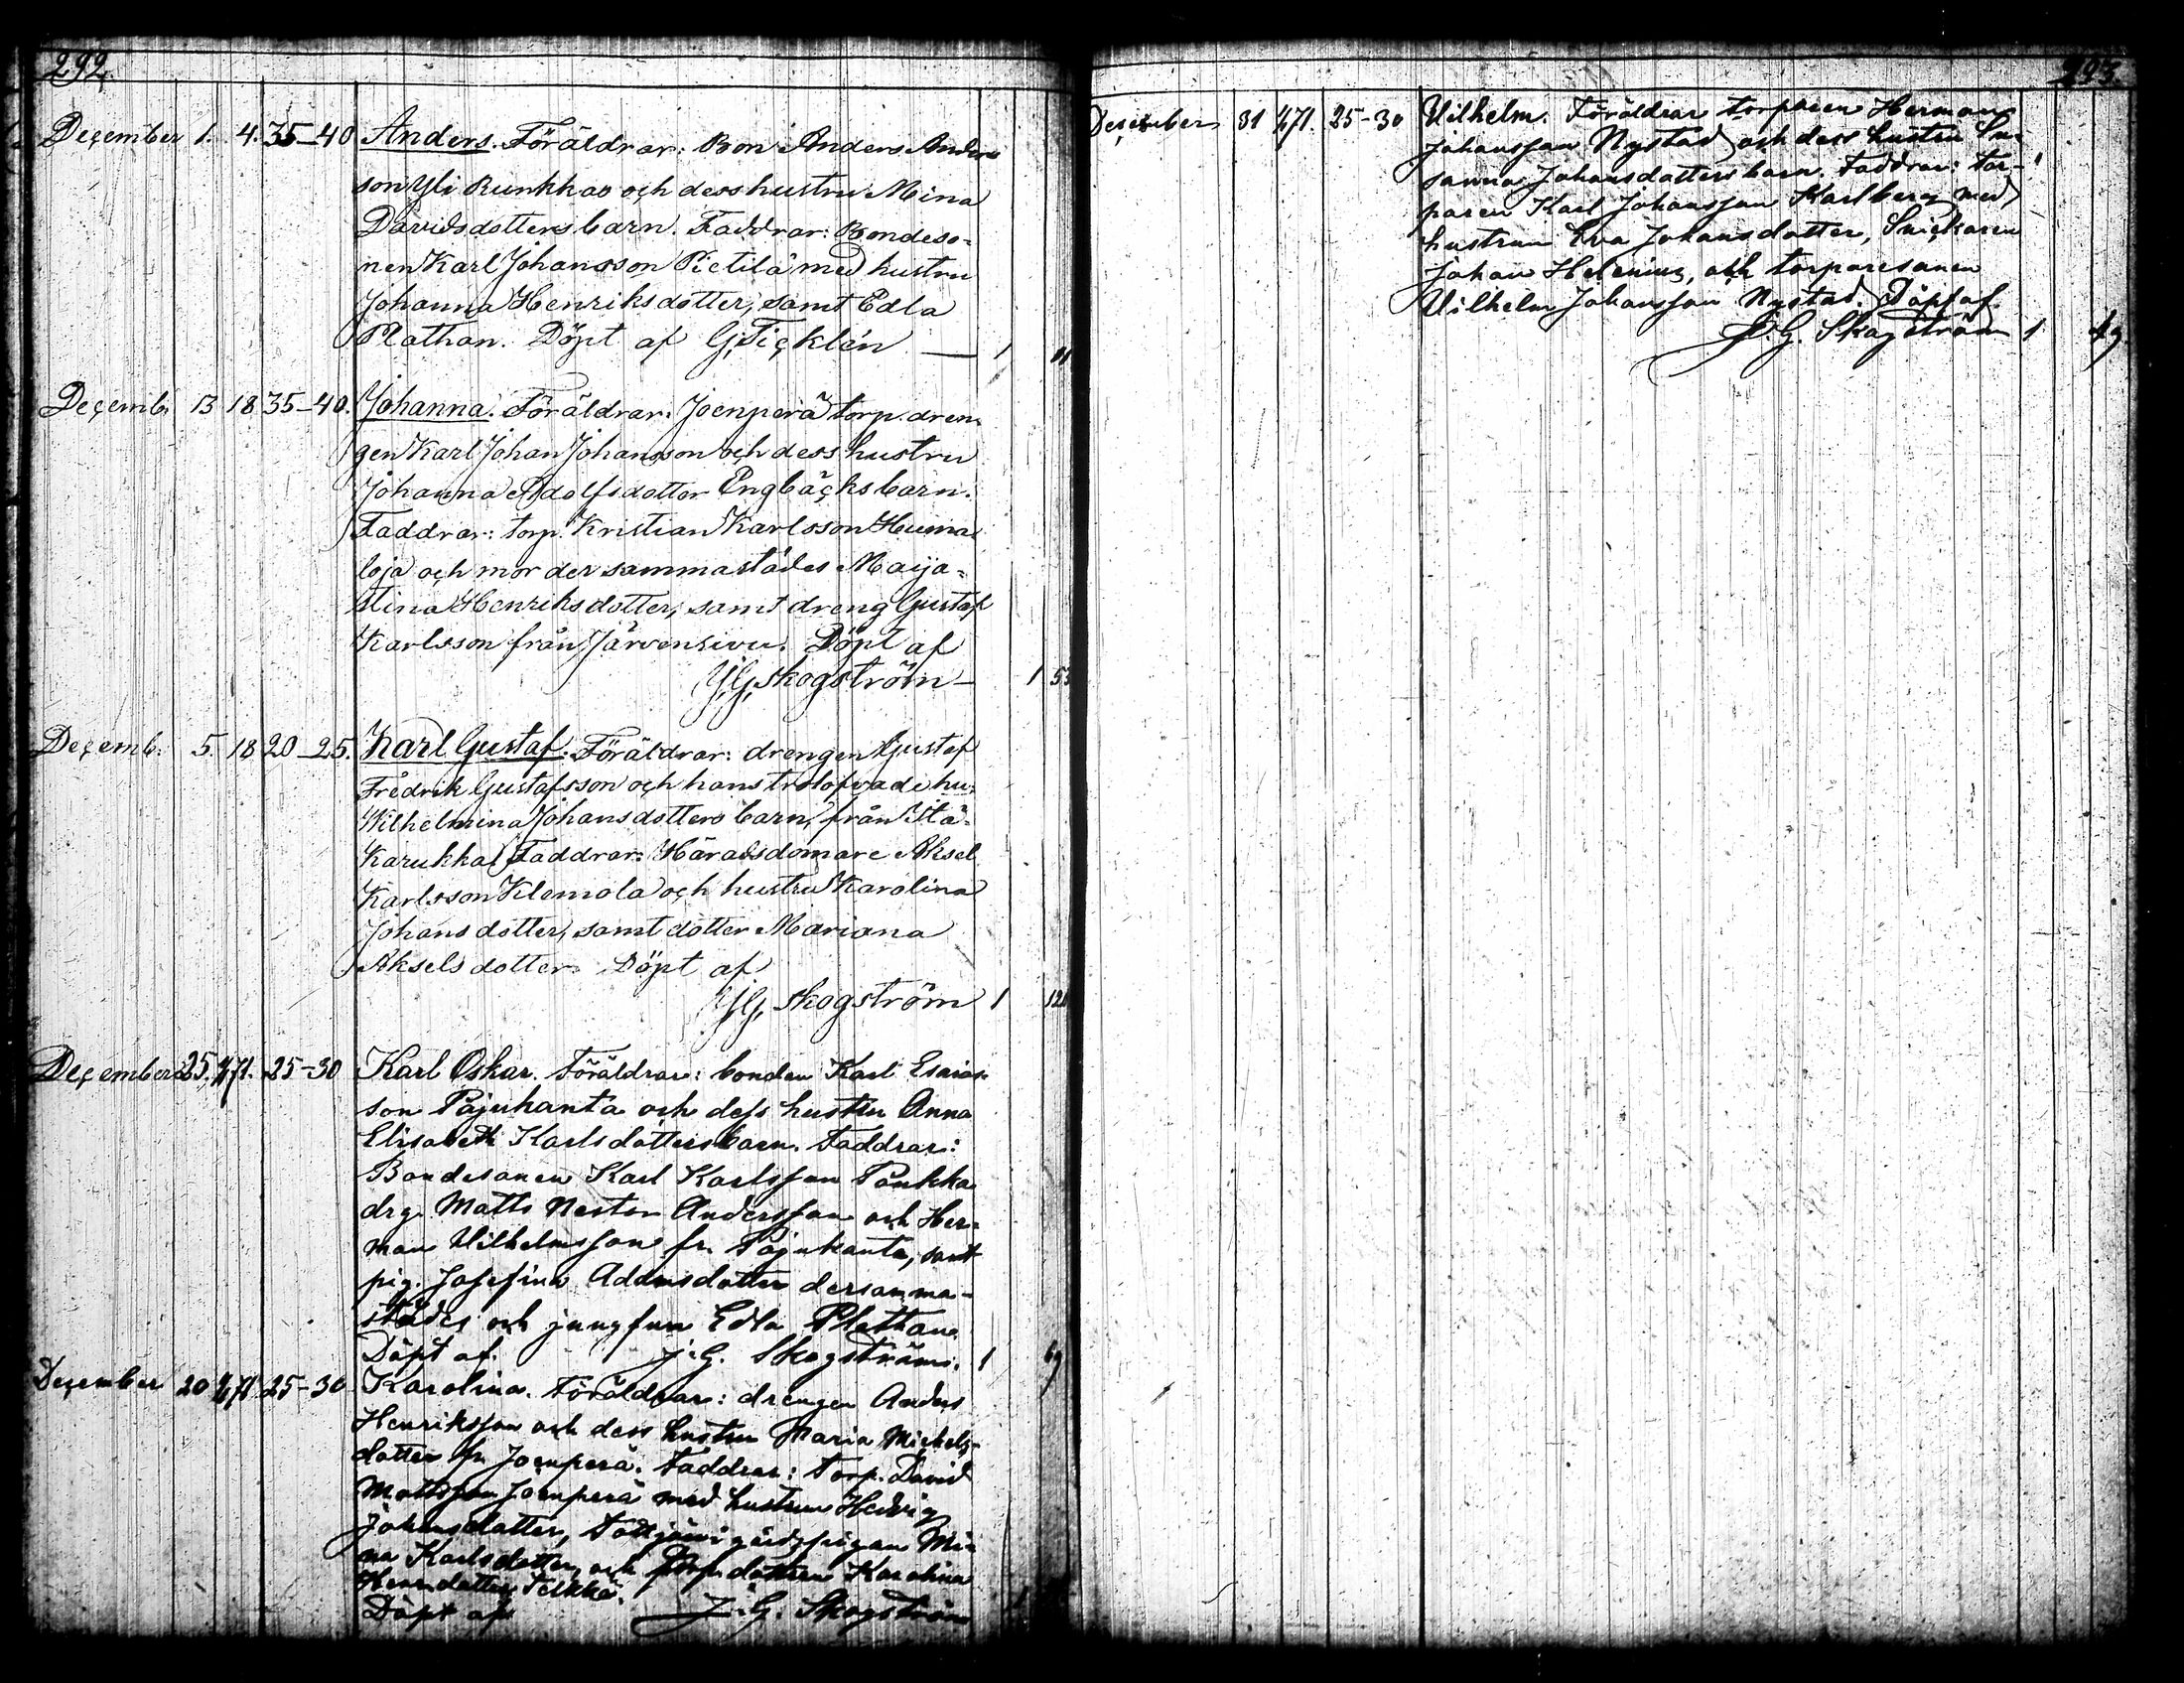 292.
December 1. 4. 35–40 Anders. Föräldrar: Bon. Anders Anders
son Yli Runkkas och dess hustru Mina
Davidsdotters barn. Faddrar: Bondeso-
nen Karl Johansson Pietilä med hustru
Johanna Henriksdotter, samt Edla
Plathan. Döpt af G. Ticklén — 1
Decemb. 13 18 35–40. Johanna. Föräldrar: Joenperä torp. dren-
gen Karl Johan Johansson och dess hustru
Johanna Adolfsdotter Engbäcks barn.
Faddrar: torp. Kristian Karlsson Huma-
loja och mor dersammastädes Maija-
stina Henriksdotter, samt dreng Gustaf
Karlsson från Järvensivu. Döpt af
J.G. Skogström – 1 53
Decemb. 5. 18 20–25. Karl Gustaf. Föräldrar: drengen Gustaf
Fredrik Gustafsson och hans trolofvade hu.
Wilhelmina Johansdotters barn, från Itä-
Karukka. Faddrar: Häradsdomare Aksel
Karlsson Klemola och hustru Karolina
Johansdotter, samt dotter Mariana
Akselsdotter. Döpt af
J.G. Skogström 1 120
December 25. 1/71. 25–30 Karl Oskar. Föräldrar: bonden Karl Esaias-
son Pajukanta och dess hustru Anna
Elisabeth Karlsdotters barn. Faddrar:
Bondesonen Karl Karlsson Pänkkä
drg. Matts Nestor Andersson och Her-
man Vilhelmsson fr. Pajukanta, samt
pig. Josefina Adamsdotter dersamma-
städes och jungfrun Edla Plathan.
Döpt af. J.G. Skogström. 1 69
December 20 1/71 25–30 Karolina. Föräldrar: drengen Anders
Henriksson och dess hustru Maria Michels-
dotter fr. Joenperä. Faddrar: Torp. David
Mattsson Joenperä med hustrun Hedvig
Johansdotter, gårdspigan Mi-
na Karlsdotter, och dottren Karolina
Henr.dotter
Döpt af J.G. Skogström 1
293.
December 31 1/71. 25–30 Vilhelm. Föräldrar torparen Herman
Johansson Nystad och dess hustru Su-
sanna Johansdotters barn. Faddrar: tor-
paren Karl Johansson Karlberg med
hustrun Eva Johansdotter, Snickaren
Johan Helenius, och torparesonen
Vilhelm Johansson Nystad. Döpt af
J.G. Skogström 1 49